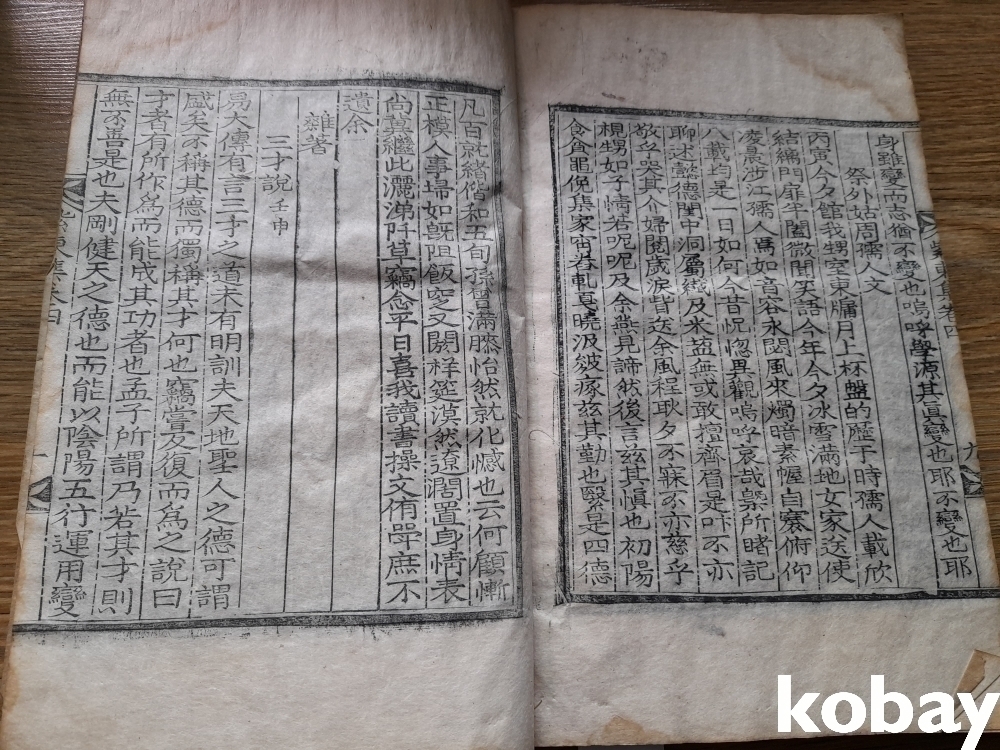 身雖變而志猶不變也嗚呼學源其眞變也耶不變也耶
祭外姑周孺人文
丙寅今夕館我甥室東牖月上杯盤的歷于時孺人載欣
結縭門扉半闔微聞笑語今年今夕冰雪滿地女家送使
凌晨涉江孺人焉如音容永閟風來燭暗素幄自褰俯仰
八載均是一日如何今昔怳惚異觀嗚呼哀哉槩所睹記
聊述懿德閨中洞屬織及米盐無或敢擅齊眉是吁不亦
敬乎哭其介婦閱歲淚皆送余風程耿夕不寐不亦慈乎
視甥如子情若呢呢及余燕見諦然後言玆其愼也初陽
食食黽俛集家宙若軋夏曉汲皴瘃玆其勤也緊是四德
紫東集卷四
九
凡百就緖偕和五旬孫曾滿膝怡然就化憾也云何顧慚
正模人事埽如旣阻飯窆又闕祥筵漠然遼濶置身情表
尙冀繼此灑涕阡草竊念平日喜我讀書操文侑學庶不
遺余
雜著
三才說 壬申
易大傳有言三才之道未有明訓夫天地聖人之德可謂
盛矣不稱其德而獨稱其才何也竊嘗反復而爲之說曰
才者有所作爲而能成其功者也孟子所謂乃若其才則
無不善是也夫剛健天之德也而能以陰陽五行運用變
kobay